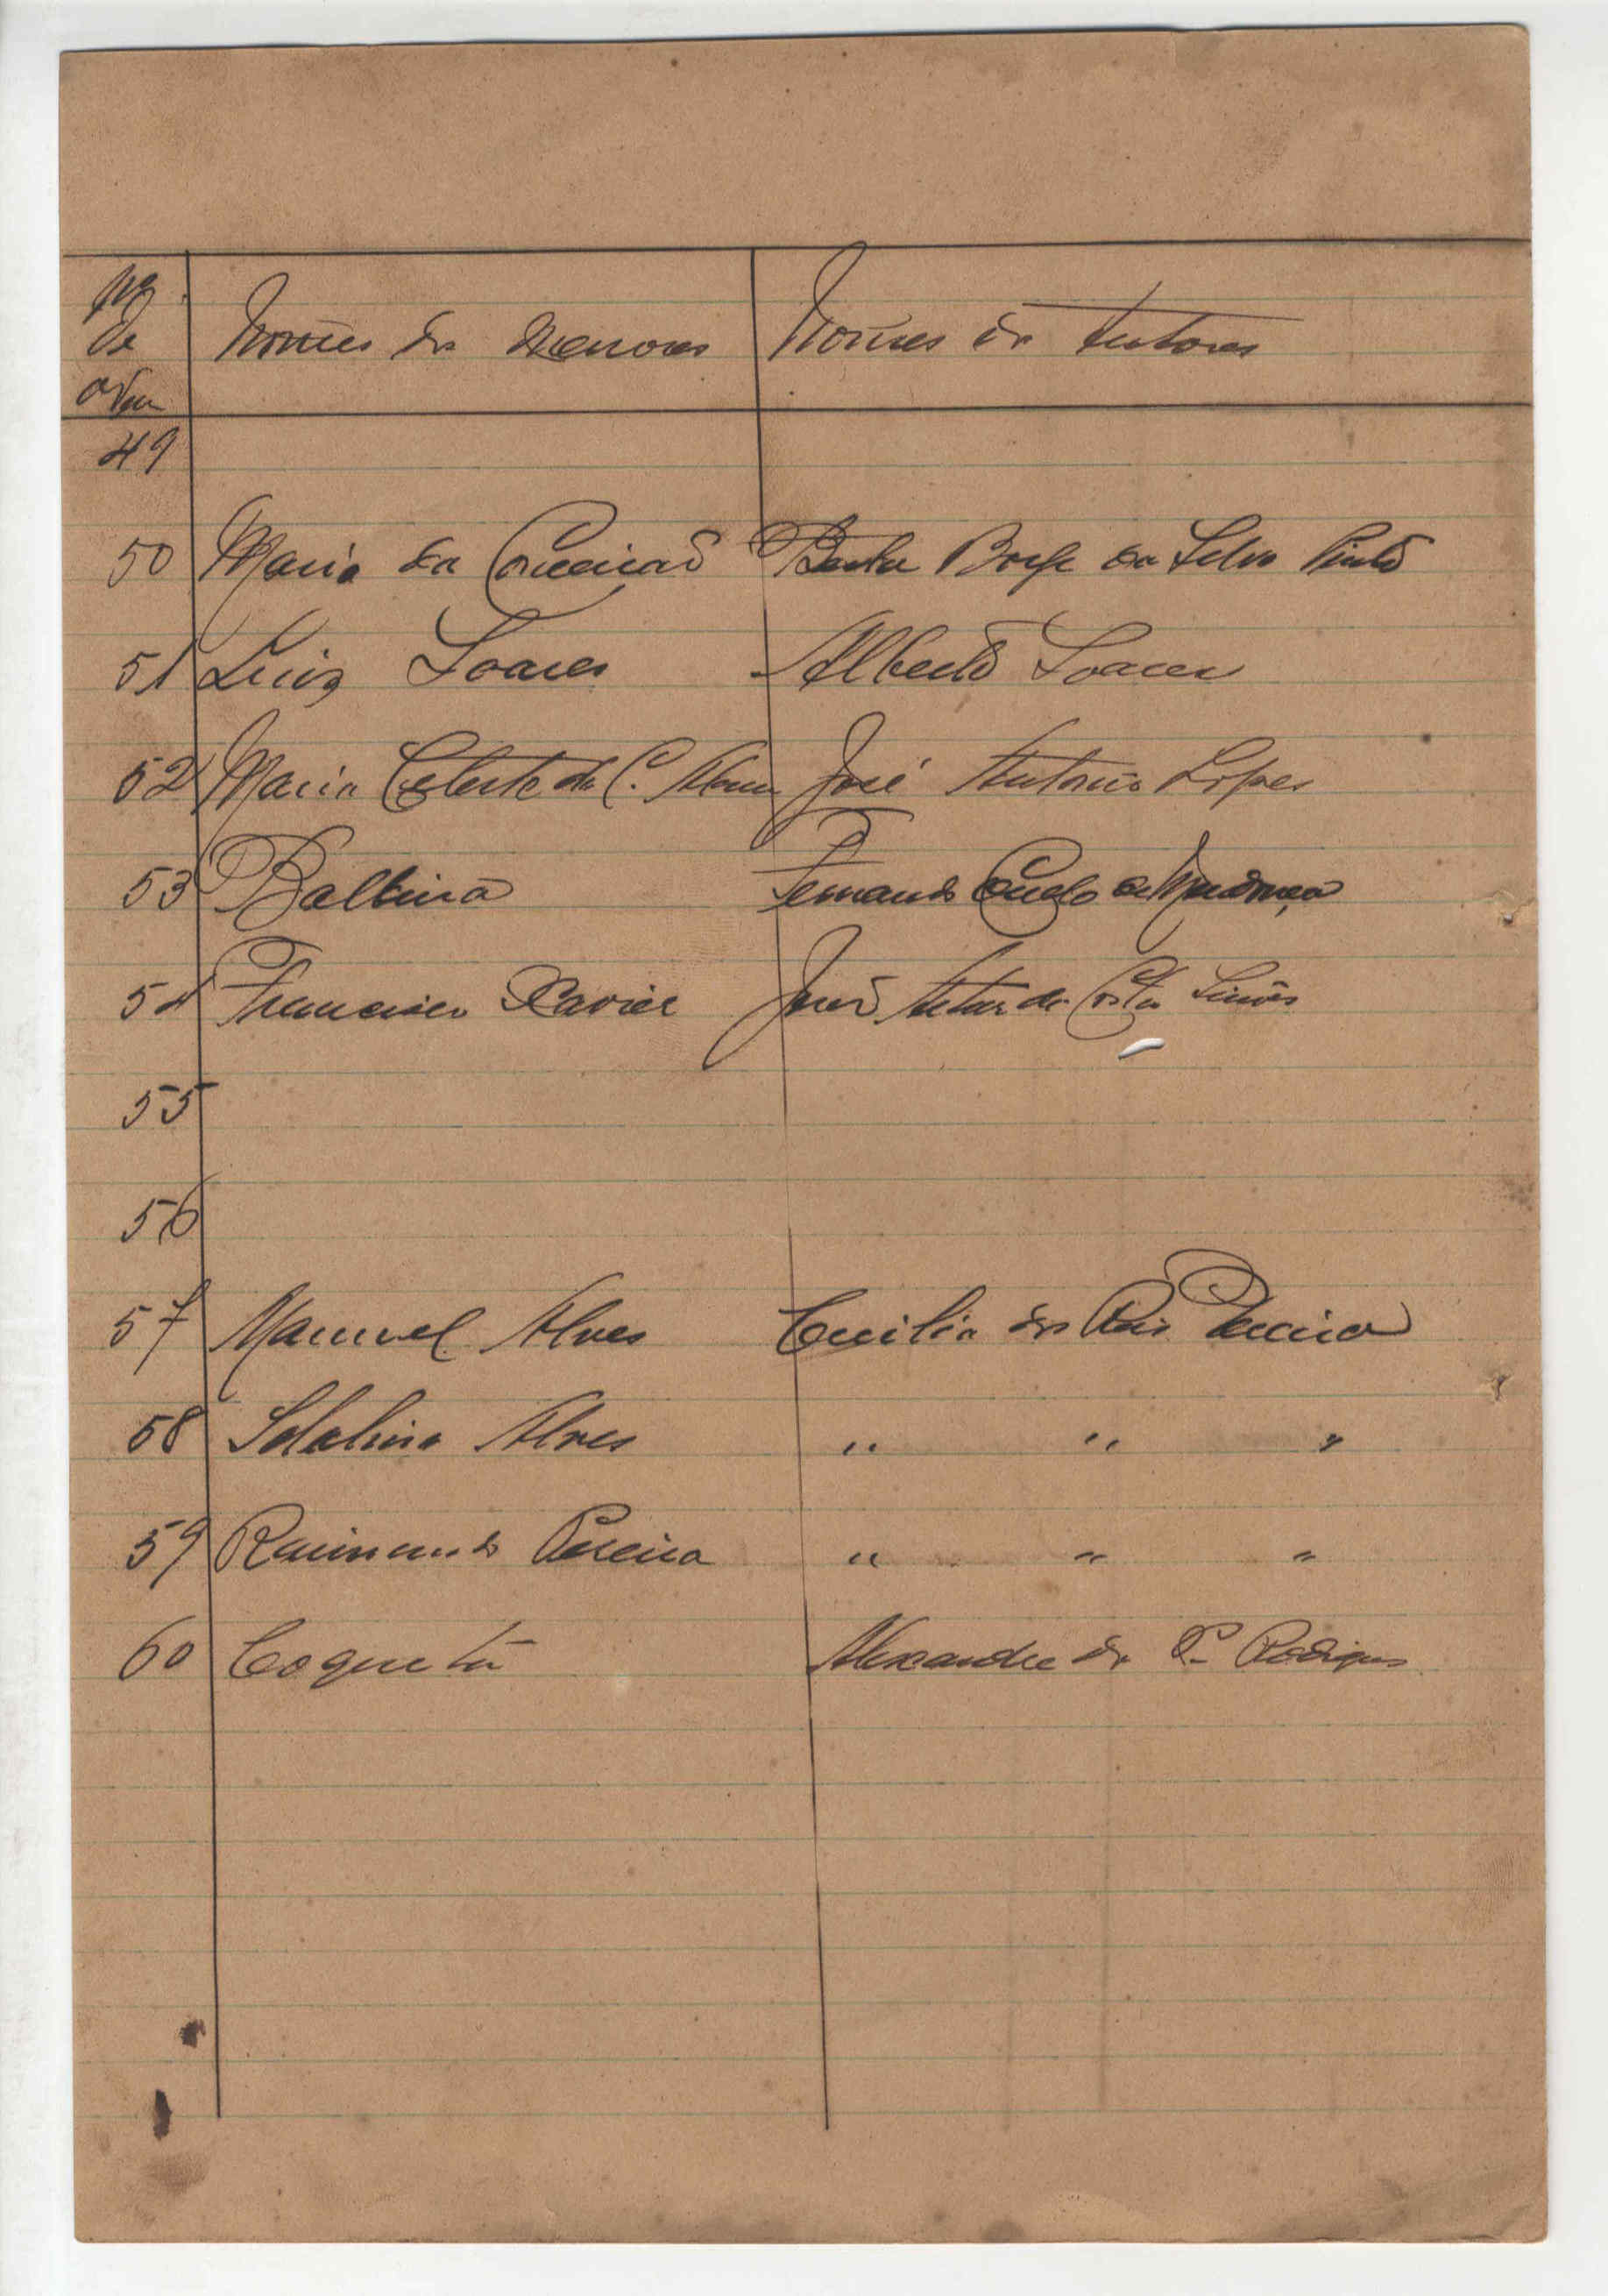 Nº de ordem Nomes dos Menores Nomes dos tutores
49
50 Maria da Conceição Borge da Silva Pinto
51 Luiz Soares Alberto Soares
52 Maria Celeste da C. José Antonio Lopes
53 Balbina Fernando Coelho de Mendonça
54 Francisco Xavier Artur da Costa Simões
55
56
57 Manuel Alves Cecilia dos Reis Pereira
58 Alves " " "
59 Raimundo Pereira " " "
60 Alexandre da Rodrigues